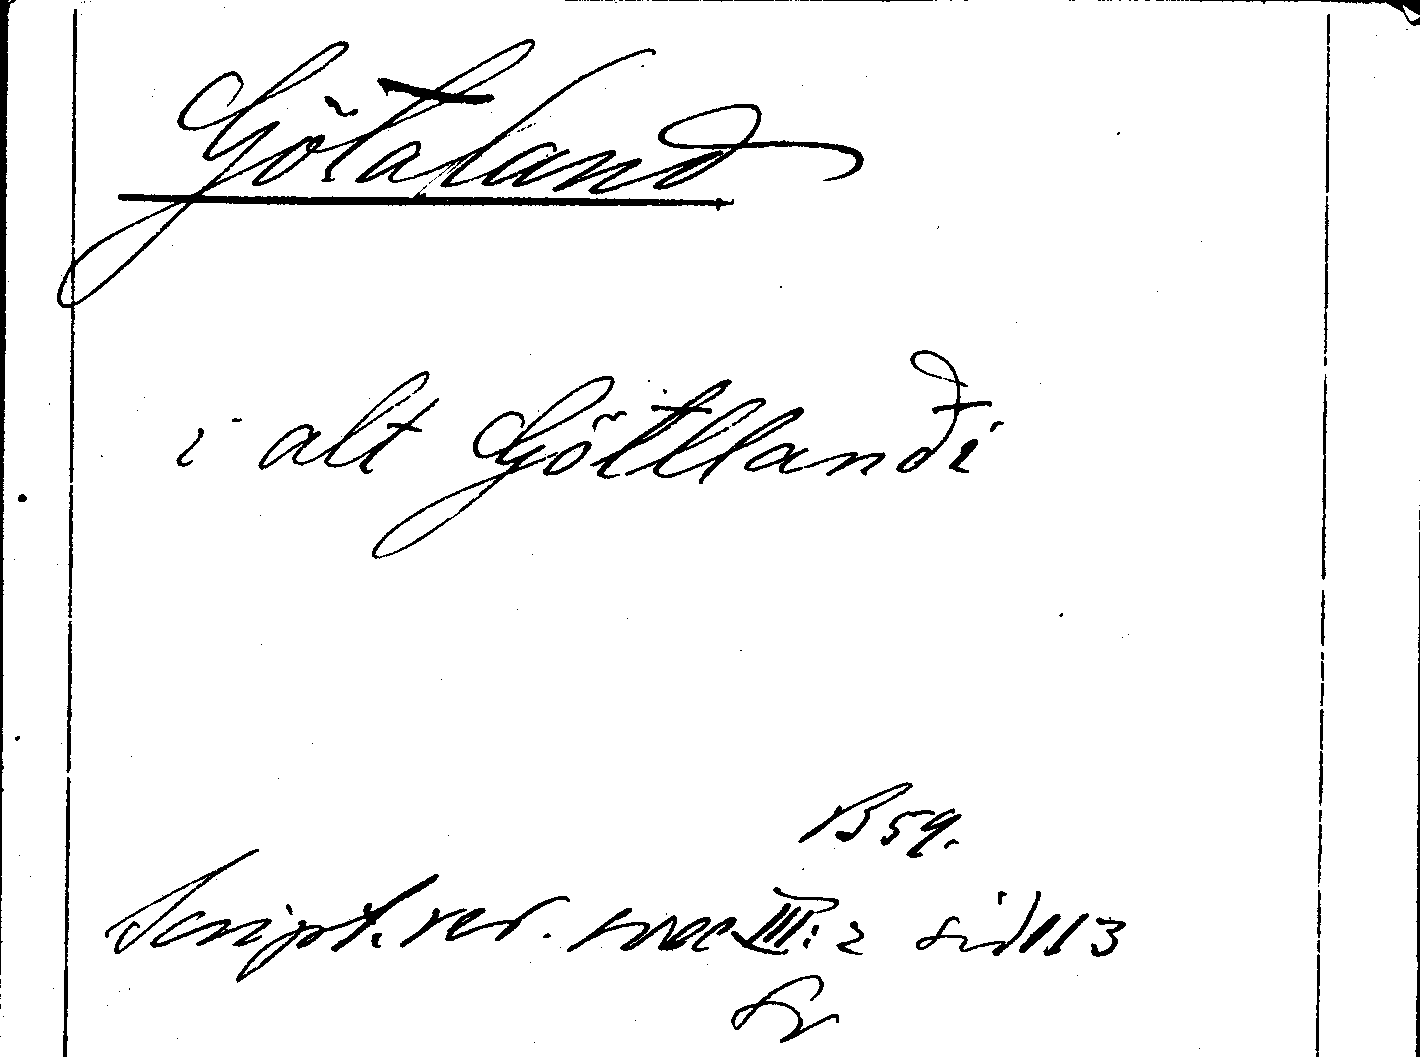 Götaland
i alt Göttlandi
B 59.
Script. rer. svec III: 2 sid 113